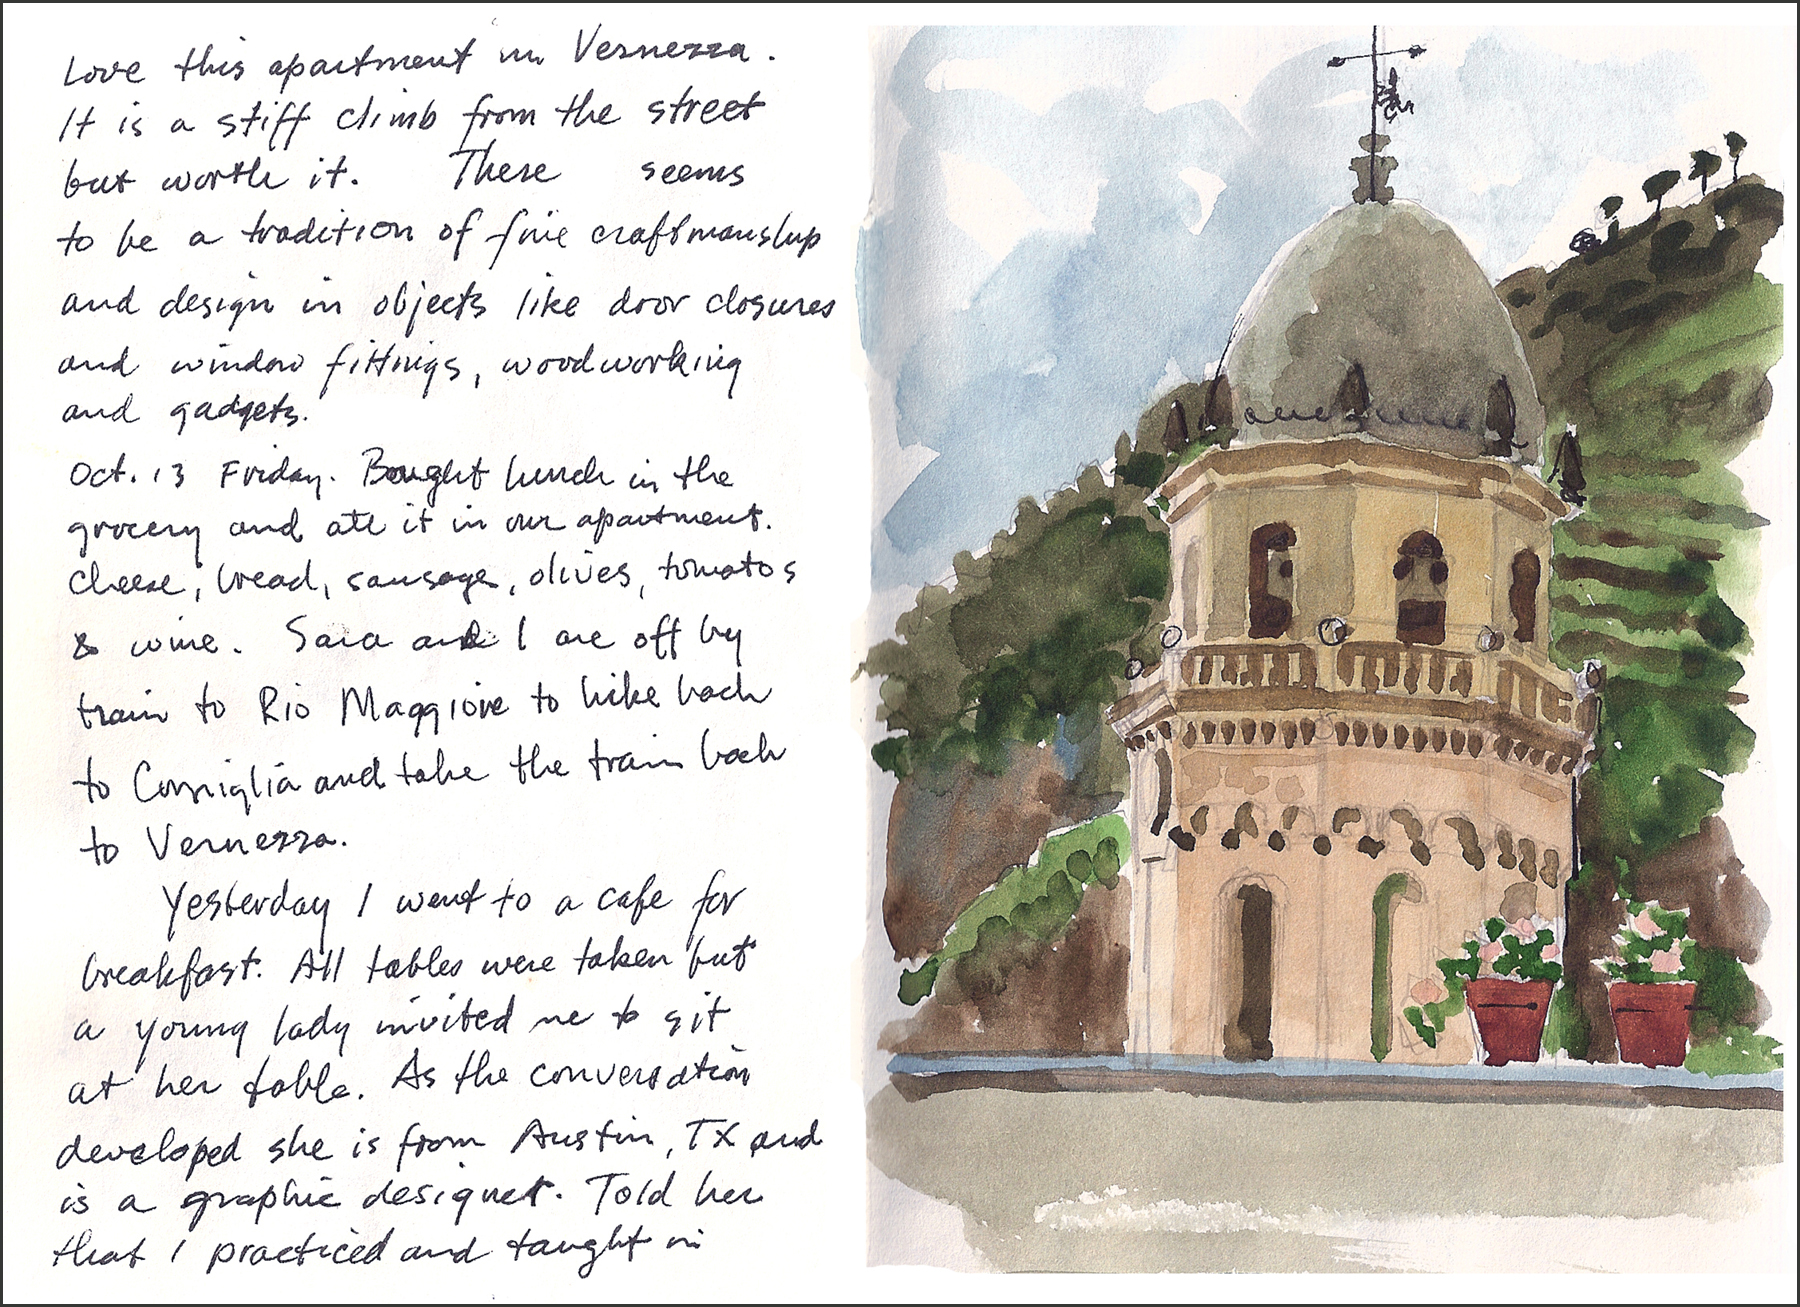 Love this apartment in Vernezza.
It is a stiff climb from the street
but worth it. There seems
to be a tradition of fine craftmanship
and design in objects like door closures
and window fittings, woodworking
and gadgets.
Oct. 13 Friday. Bought lunch in the
grocery and ate it in our apartment.
Cheese, bread, sausage, olives, tomatos
& wine. Sara and I are off by
train to Rio Maggiore to hike back
to Corniglia and take the train back
to Vernezza.
Yesterday I went to a cafe for
breakfast. All tables were taken but
a young lady invited me to sit
at her table. As the conversation
developed she is from Austin, TX and
is a graphic designer. Told her
that I practiced and taught in